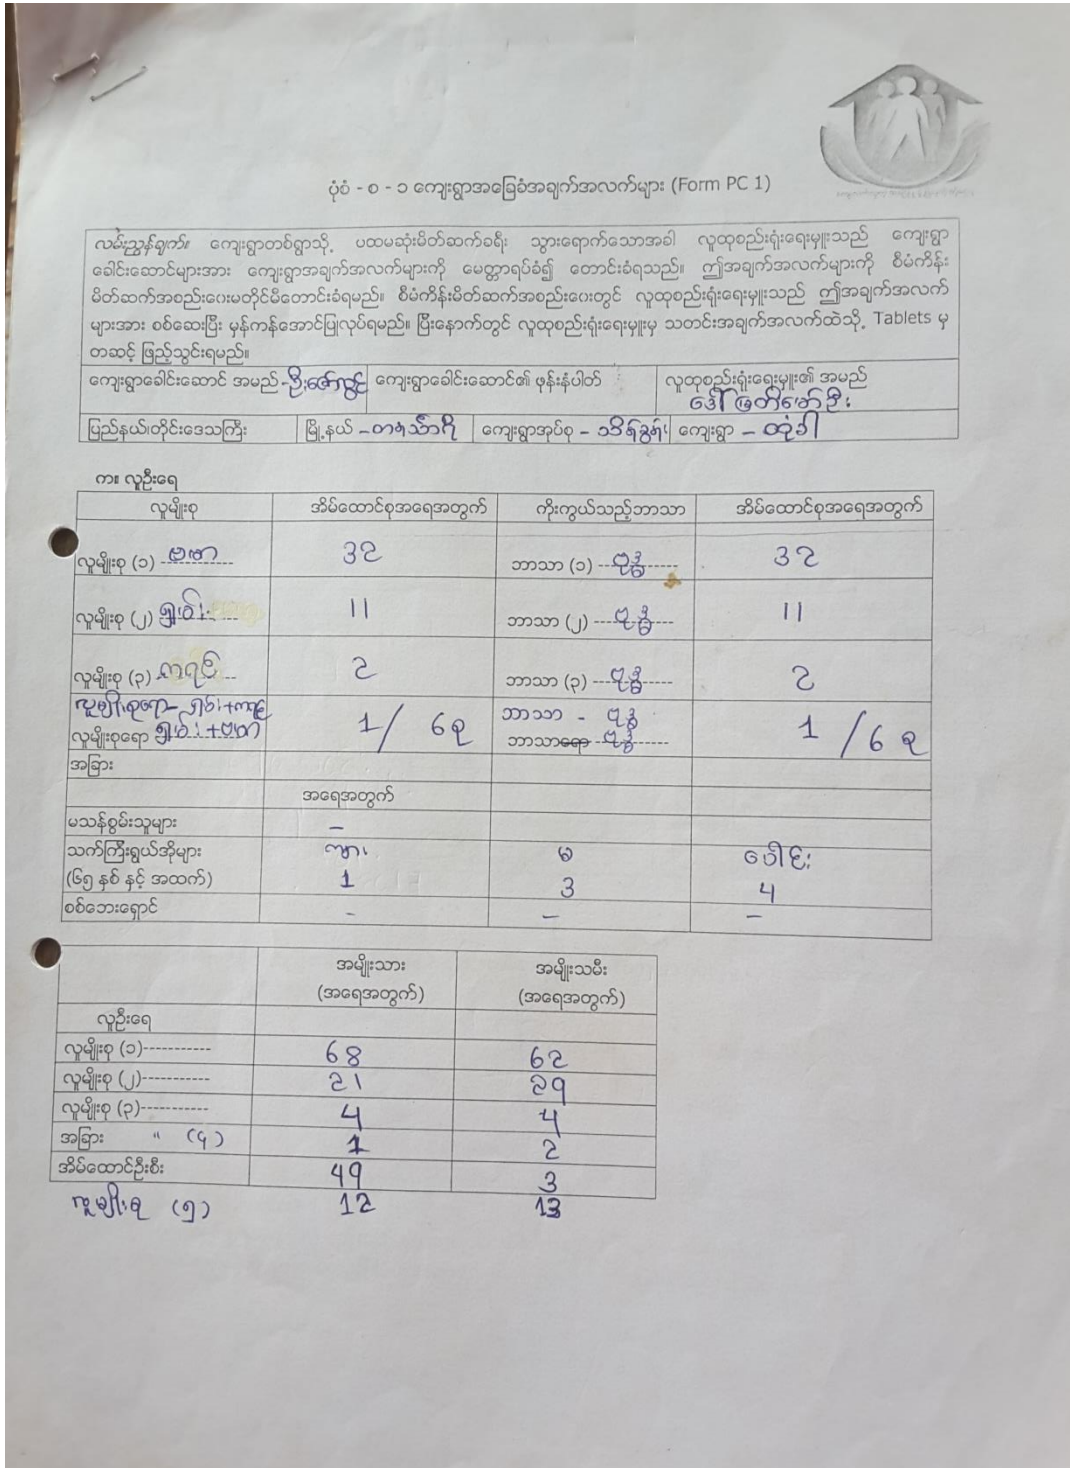 ပုံစံ - စ - ၁ ကျေးရွာအခြေခံအချက်အလက်များ (Form PC 1)
လမ်းညွှန်ချက်။ ကျေးရွာတစ်ရွာသို့ ပထမဆုံးမိတ်ဆက်ခရီး သွားရောက်သောအခါ လူထုစည်းရုံးရေးမှူးသည် ကျေးရွာ
ခေါင်းဆောင်များအား ကျေးရွာအချက်အလက်များကို မေတ္တာရပ်ခံ၍ တောင်းခံရသည်။ ဤအချက်အလက်များကို စီမံကိန်း
မိတ်ဆက်အစည်းဝေးမတိုင်မီတောင်းခံရမည်။ စီမံကိန်းမိတ်ဆက်အစည်းဝေးတွင် လူထုစည်းရုံးရေးမှူးသည် ဤအချက်အလက်
များအား စစ်ဆေးပြီး မှန်ကန်အောင်ပြုလုပ်ရမည်။ ပြီးနောက်တွင် လူထုစည်းရုံးရေးမှူးမှ သတင်းအချက်အလက်ထဲသို့ Tablets မှ
တဆင့် ဖြည့်သွင်းရမည်။
ကျေးရွာခေါင်းဆောင် အမည် - ဦးဇော်လွင် ကျေးရွာခေါင်းဆောင်၏ ဖုန်းနံပါတ် လူထုစည်းရုံးရေးမှူး၏ အမည်
ပြည်နယ်၊တိုင်းဒေသကြီး မြို့နယ် - တနင်္သာရီ ကျေးရွာအုပ်စု - သိန်ခွန်း ကျေးရွာ -
က။ လူဦးရေ
လူမျိုးစု အိမ်ထောင်စုအရေအတွက် ကိုးကွယ်သည့်ဘာသာ အိမ်ထောင်စုအရေအတွက်
လူမျိုးစု (၁) ဗမာ 32 ဘာသာ (၁) ဗုဒ္ဓ 32
လူမျိုးစု (၂) ရှမ်း 11 ဘာသာ (၂) ဗုဒ္ဓ 11
လူမျိုးစု (၃) ကရင် 2 ဘာသာ (၃) ဗုဒ္ဓ 2
လူမျိုးစုရော - ရှမ်း+ကရင် ဘာသာ - ဗုဒ္ဓ
လူမျိုးစုရော ရှမ်း+ဗမာ 1/ 6စု ဘာသာရော ဗုဒ္ဓ 1 /6 စု
အခြား
အရေအတွက်
မသန်စွမ်းသူများ -
သက်ကြီးရွယ်အိုများ ကျား မ ပေါင်း
(၆၅ နှစ် နှင့် အထက်) 1 3 4
စစ်ဘေးရှောင် - - -
အမျိုးသား အမျိုးသမီး
(အရေအတွက်) (အရေအတွက်)
လူဦးရေ
လူမျိုးစု (၁)----------- 68 62
လူမျိုးစု (၂)----------- 21 29
လူမျိုးစု (၃)----------- 4 4
အခြား " (၄) 1 2
အိမ်ထောင်ဦးစီး 49 3
လူမျိုးစု (၅) 12 13